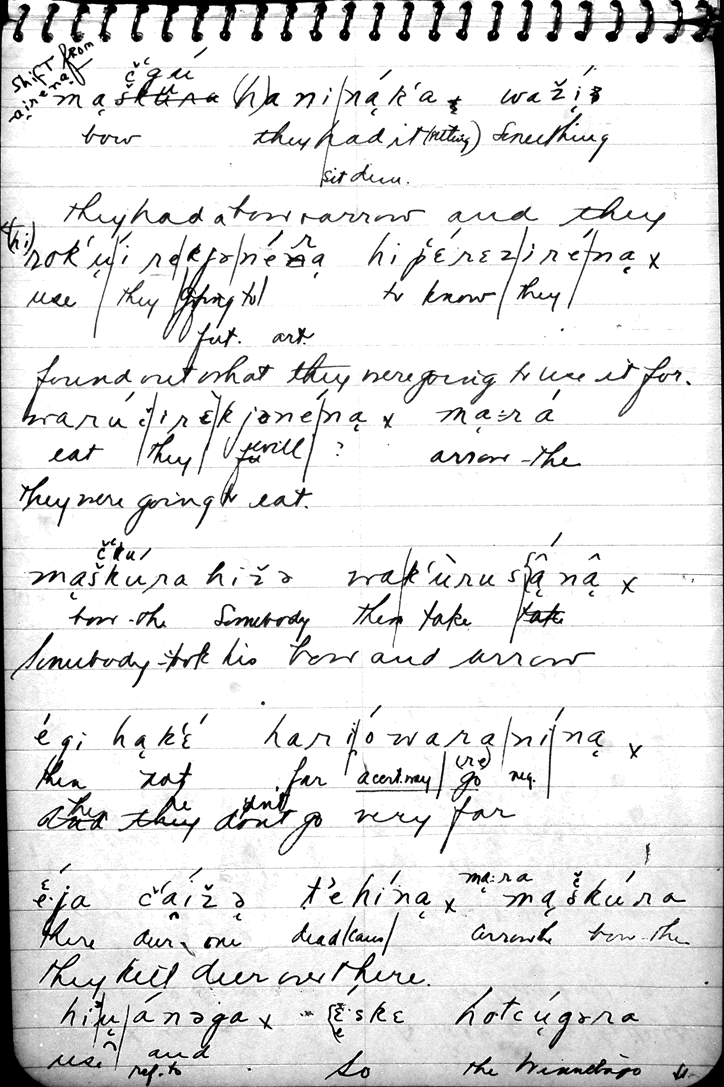 shift from
aireną
čgú
mąškura (h)a ni|ną́k'a x wažį́ž
bow they had it (sitting) something
sit down.
they had a bow & arrow and they
(hi)
rok'ų́|i re|kjəné|rą hip'érez|iré|ną x
use | they | going to | to know | they
fut. art.
found out what they were going to use it for.
warúč|irèkjəné|ną x mą:rá
eat | they | will | ? arrow-the
they were going to eat.
čkú
mąškúra hižə wak'ùrusą̂ną̂ x
bow-the somebody them take take
Somebody took his bow and arrow
égi hąk'é hari|ówara|ní|ną x
then not far a cert. way | go (re) neg.
he didn't go very far
é·ja č'aížə t'ehíną x mą:ra mąškúra
there deer, one dead (caus) arrow the bow-the
they kill deer over there.
hi'ų|ánəga x éskɛ hotcų́gəra
use and so the Winnebago
ref. to